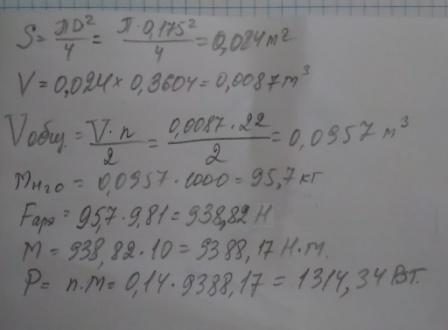 S = πD²/4 = π·0,175²/4 = 0,024 м²
V = 0,024 × 0,3604 = 0,0087 м³
Vобщ. = V·n/2 = 0,0087·22/2 = 0,0957 м³
mн2о = 0,0957·1000 = 95,7 кг
Fарх = 95,7·9,81 = 938,82 Н
M = 938,82·10 = 9388,17 Н·м.
P = n·M = 0,14·9388,17 = 1314,34 Вт.